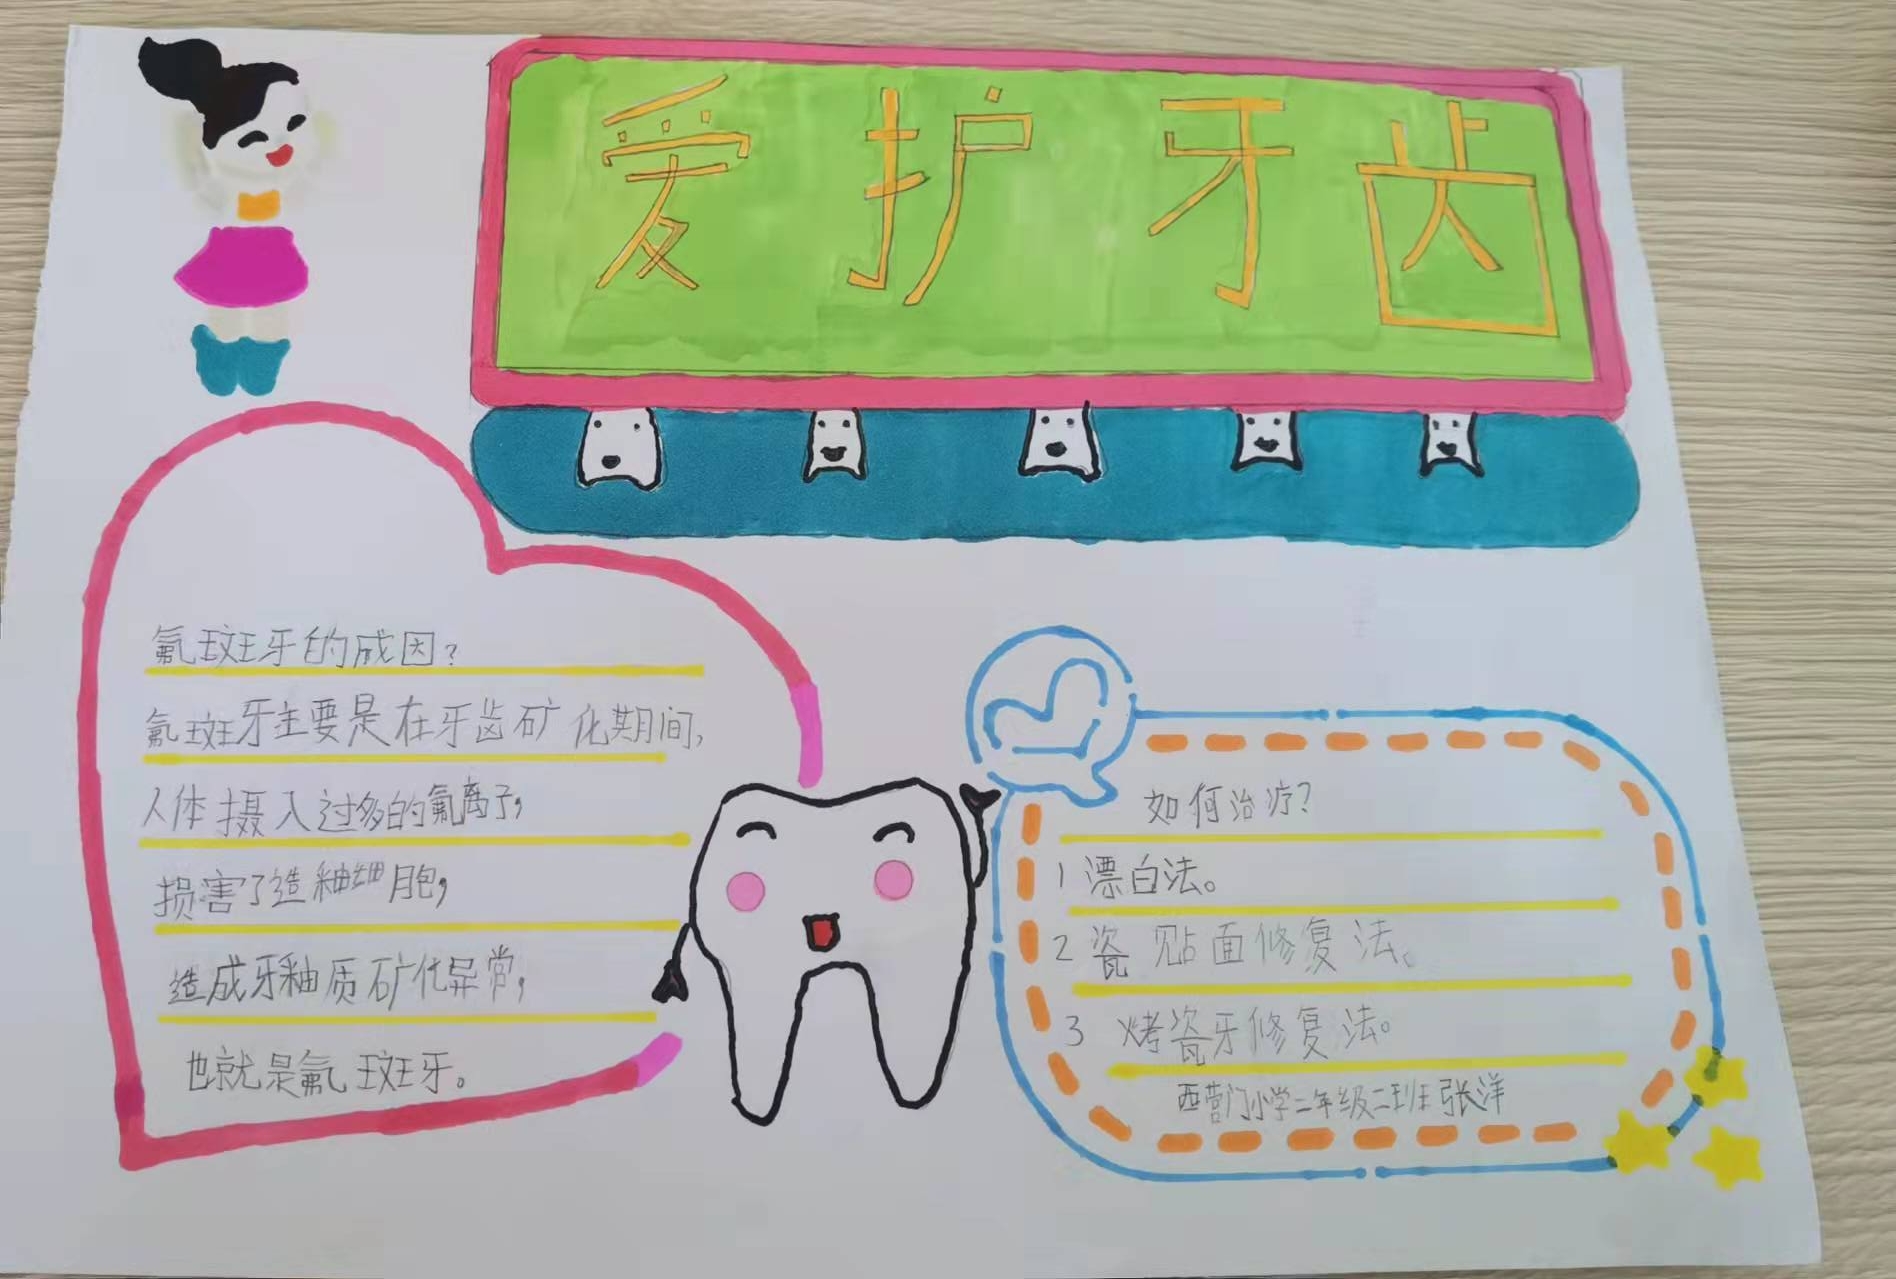 爱护牙齿
氟斑牙的成因？
氟斑牙主要是在牙齿矿化期间，
人体摄入过多的氟离子，
损害了造釉细胞，
造成牙釉质矿化异常，
也就是氟斑牙。
如何治疗？
1漂白法。
2瓷贴面修复法。
3烤瓷牙修复法。
西营门小学二年级二班张洋